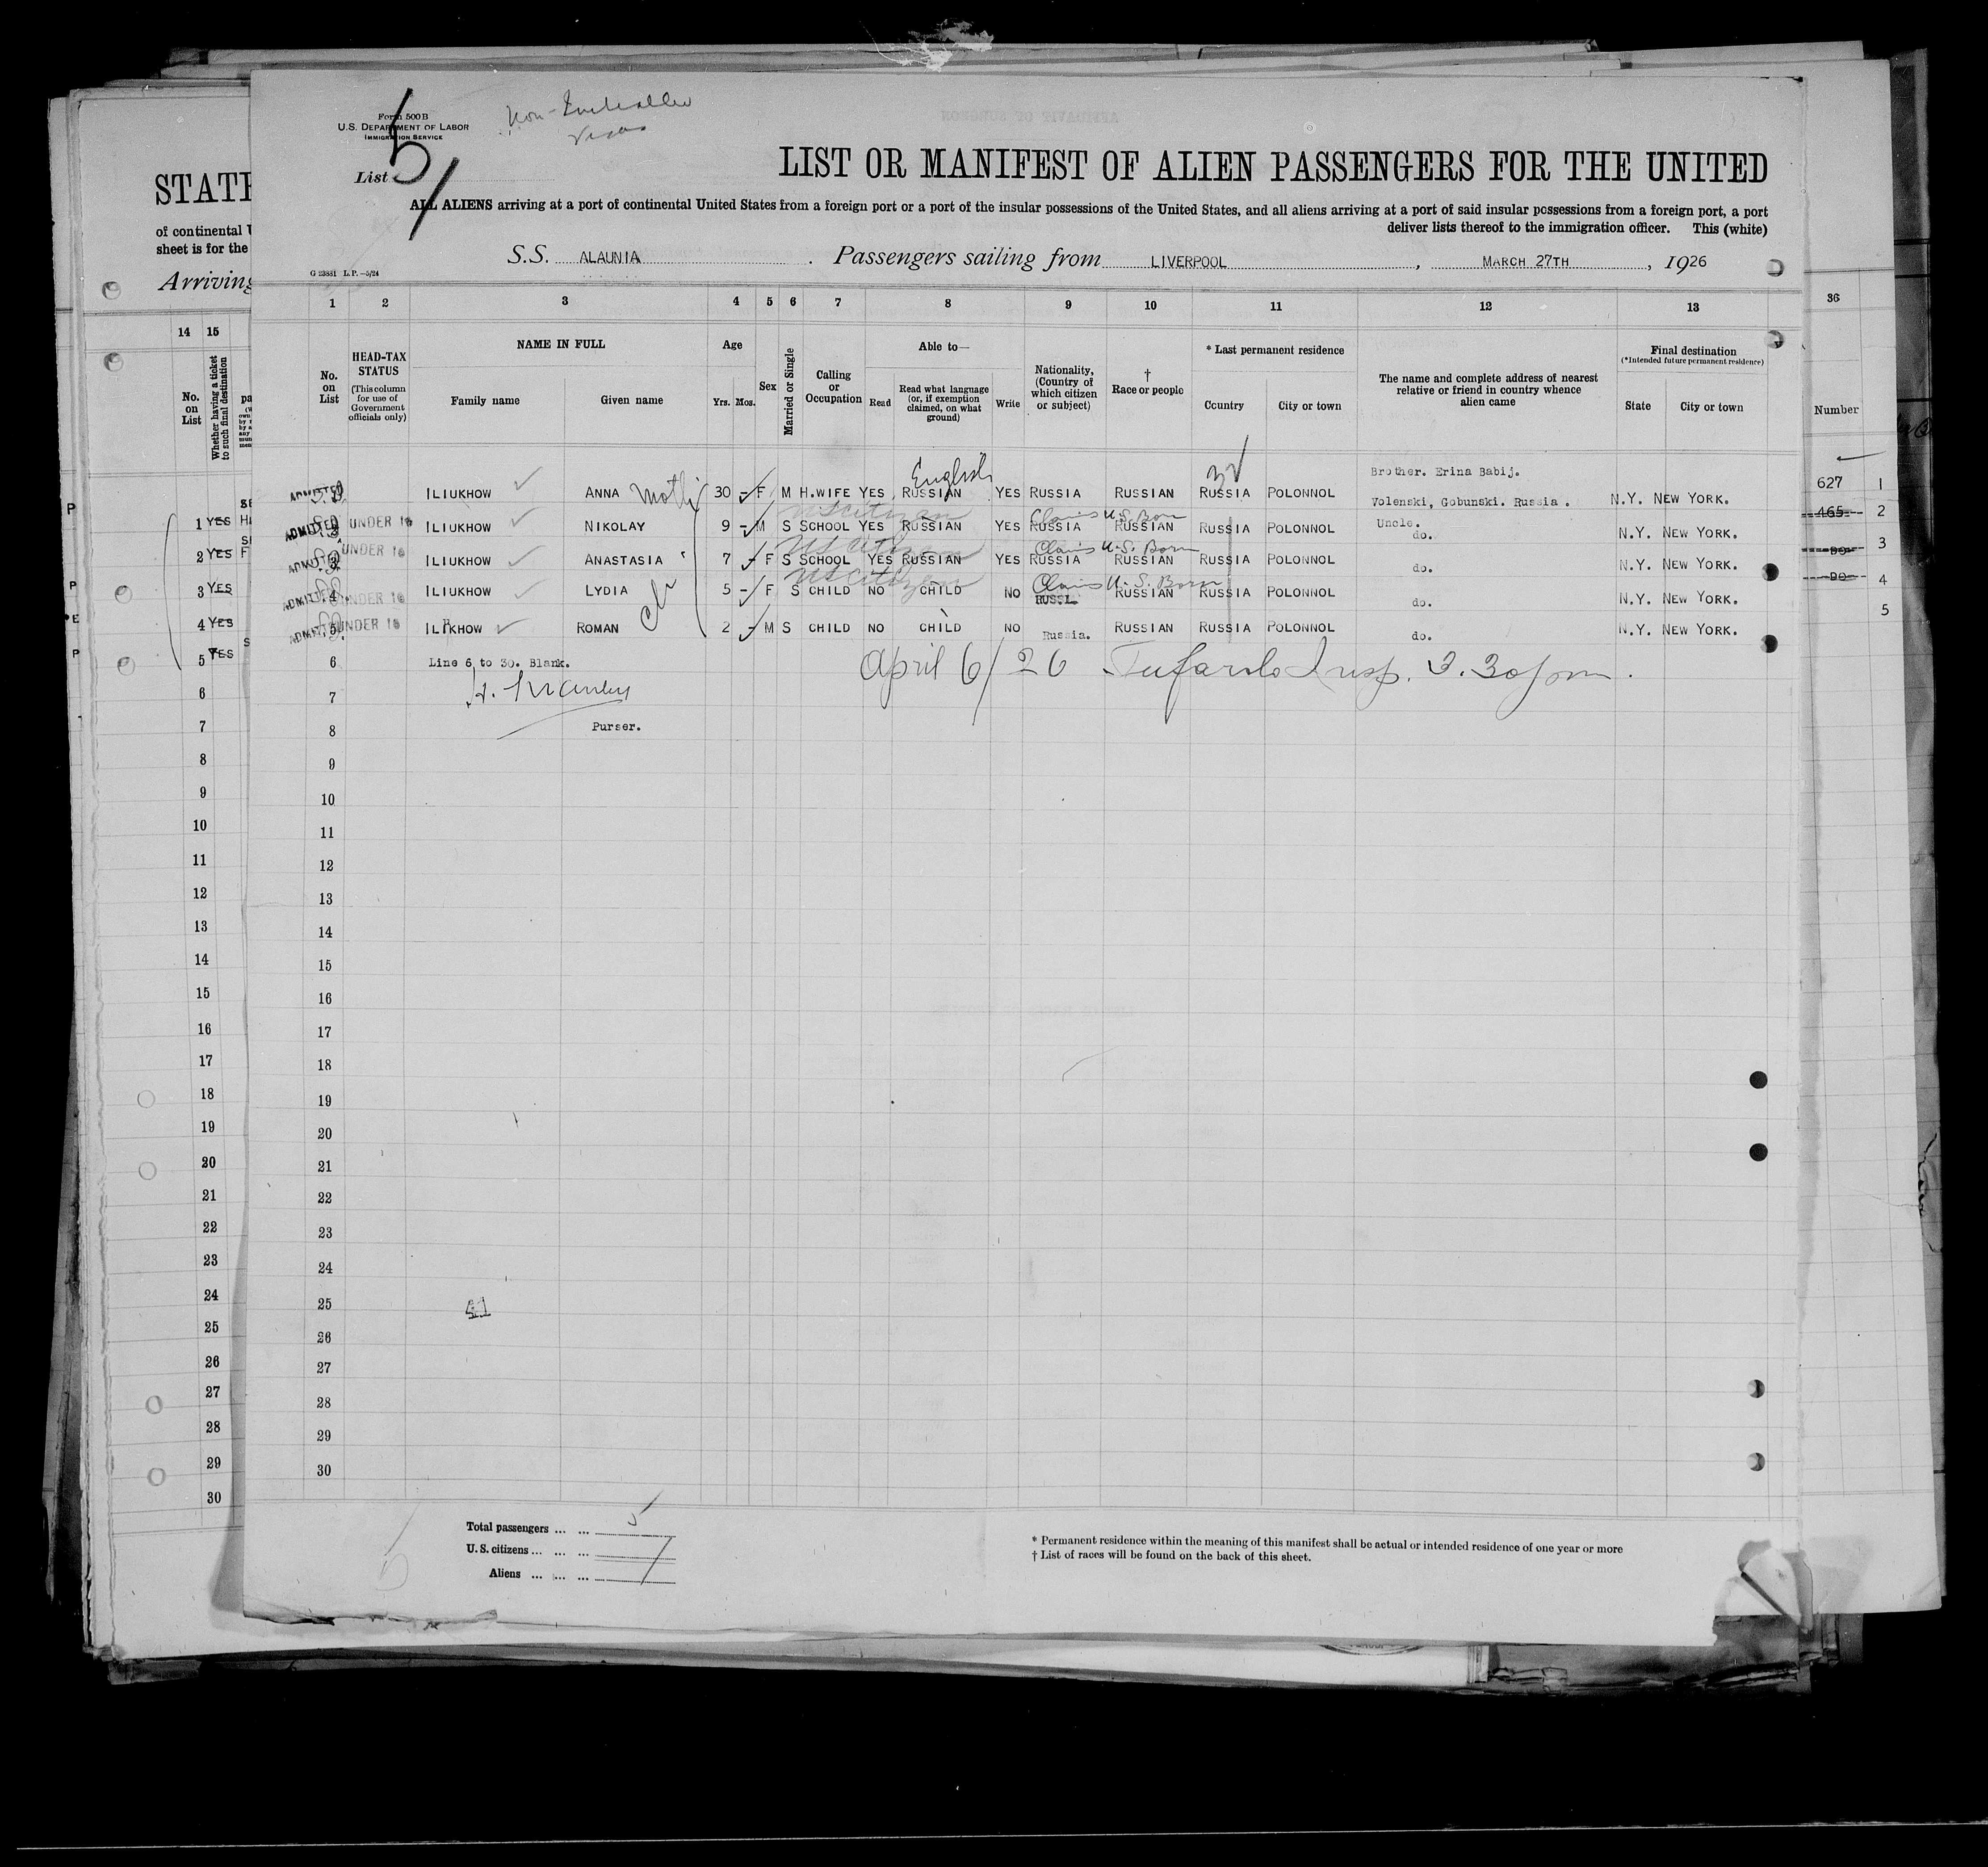 Form 500B
U.S. DEPARTMENT OF LABOR
IMMIGRATION SERVICE
Non-Immigrant
Visas
List 5
LIST OR MANIFEST OF ALIEN PASSENGERS FOR THE UNITED
ALL ALIENS arriving at a port of continental United States from a foreign port or a port of the insular possessions of the United States, and all aliens arriving at a port of said insular possessions from a foreign port, a port
deliver lists thereof to the immigration officer. This (white)
S.S. ALAUNIA. Passengers sailing from LIVERPOOL, MARCH 27TH, 1926
G 23881 L.P.—5/24
1 2 3 4 5 6 7 8 9 10 11 12 13
No. on List
HEAD-TAX STATUS (This column for use of Government officials only)
NAME IN FULL
Family name Given name
Age
Yrs. Mos.
Sex
Married or Single
Calling or Occupation
Able to—
Read Read what language (or, if exemption claimed, on what ground) Write
Nationality, (Country of which citizen or subject)
† Race or people
* Last permanent residence
Country City or town
The name and complete address of nearest relative or friend in country whence alien came
Final destination
(*Intended future permanent residence)
State City or town
English
Brother. Erina Babij.
ADMITTED ILIUKHOW ANNA 30 - F M H.WIFE YES RUSSIAN YES RUSSIA RUSSIAN RUSSIA POLONNOL Volenski, Gobunski. Russia. N.Y. NEW YORK.
US citizen Claims U.S. Born
ADMITTED UNDER 16 ILIUKHOW NIKOLAY 9 - M S SCHOOL YES RUSSIAN YES RUSSIA RUSSIAN RUSSIA POLONNOL Uncle. do. N.Y. NEW YORK.
US citizen Claims U.S. Born
ADMITTED UNDER 16 3 ILIUKHOW ANASTASIA 7 - F S SCHOOL YES RUSSIAN YES RUSSIA RUSSIAN RUSSIA POLONNOL do. N.Y. NEW YORK.
US citizen Claims U.S. Born
ADMITTED UNDER 16 4 ILIUKHOW LYDIA 5 - F S CHILD NO CHILD NO RUSSIAN RUSSIA POLONNOL do. N.Y. NEW YORK.
ADMITTED UNDER 16 5 ROMAN 2 - M S CHILD NO CHILD NO Russia. RUSSIAN RUSSIA POLONNOL do. N.Y. NEW YORK.
6 Line 6 to 30. Blank. April 6/26 Insp. 3.30 pm.
7
8 Purser.
9
10
11
12
13
14
15
16
17
18
19
20
21
22
23
24
25 41
26
27
28
29
30
Total passengers ... ... 5
U. S. citizens ... ... ...
Aliens ... ... ...
* Permanent residence within the meaning of this manifest shall be actual or intended residence of one year or more
† List of races will be found on the back of this sheet.
STATE
of continental
sheet is for the
Arriving
14 15
No. on List
Whether having a ticket to such final destination
1 YES
2 YES
3 YES
4 YES
5 YES
6
7
8
9
10
11
12
13
14
15
16
17
18
19
20
21
22
23
24
25
26
27
28
29
30
36
Number
627 1
465 2
3
4
5